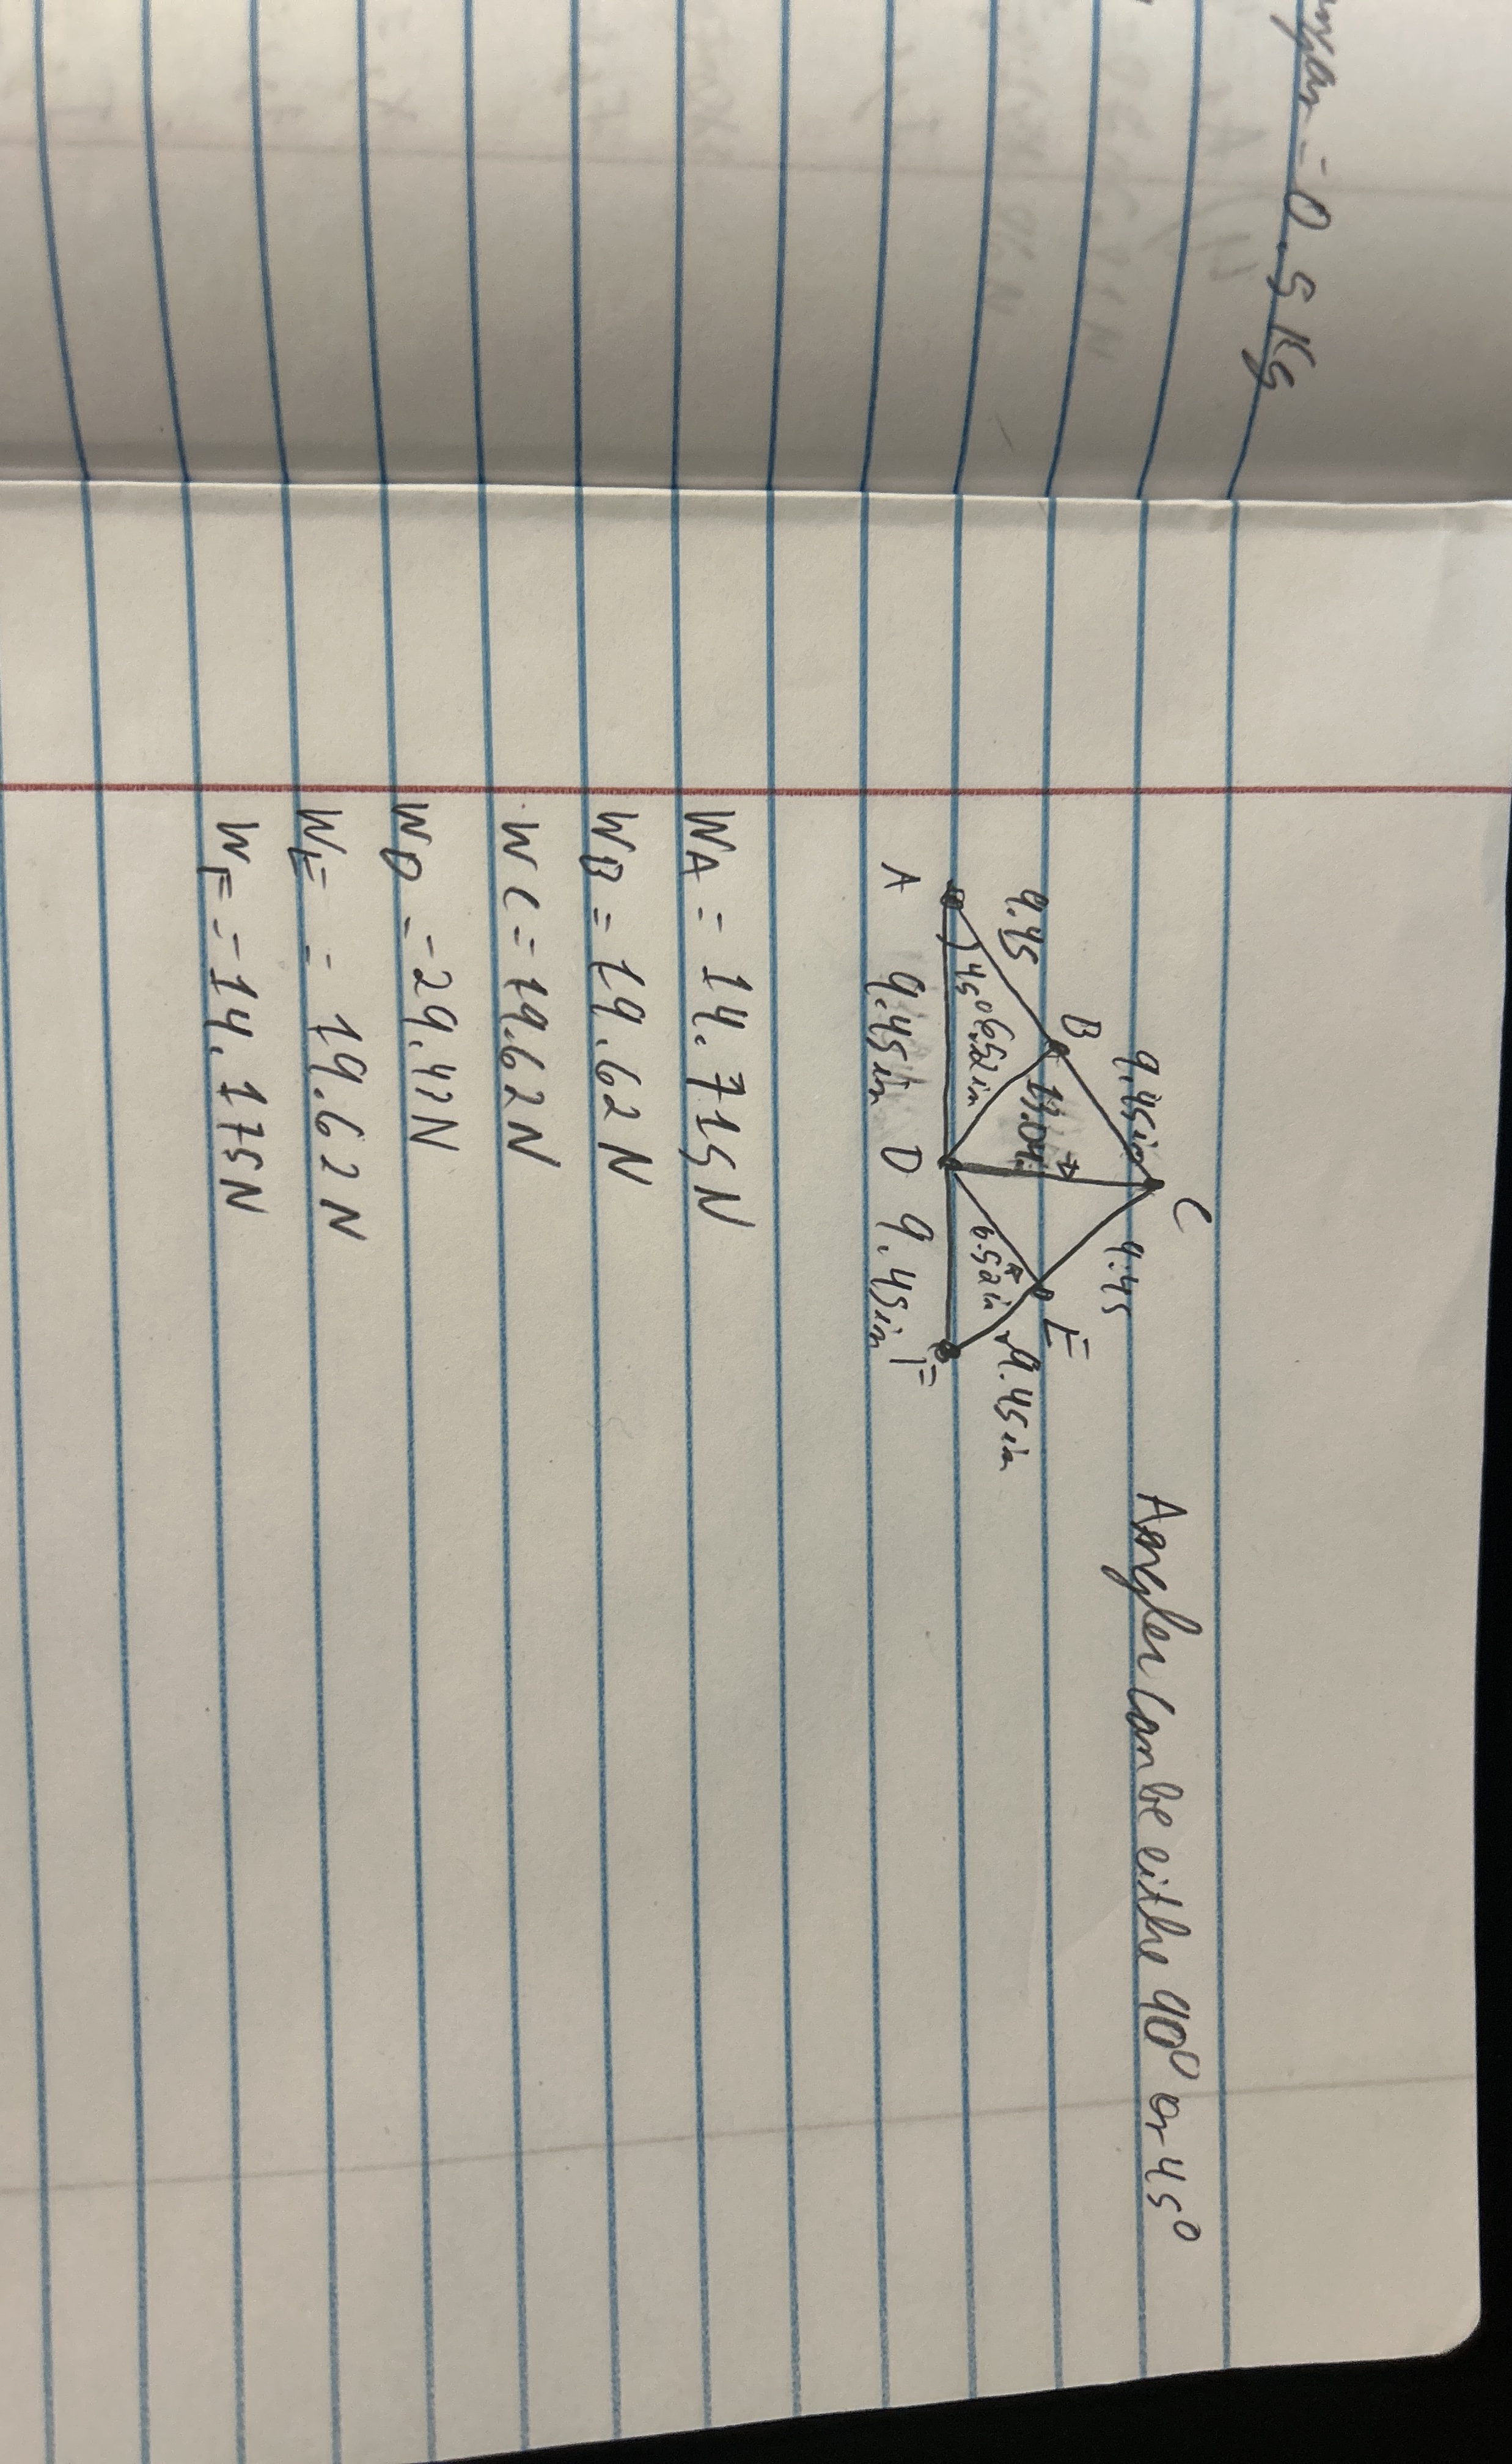 = 0.5 Kg
Angles can be eithe 40° or 45°
C
9.45in
9.45
B
E
9.45
45°
6.52in
6.52in
9.45in
A
9.45in
D
9.45in
F
WA = 14.715N
WB = 19.62N
WC = 19.62N
WD = 29.42N
WE = 19.62N
WF = 14.175N